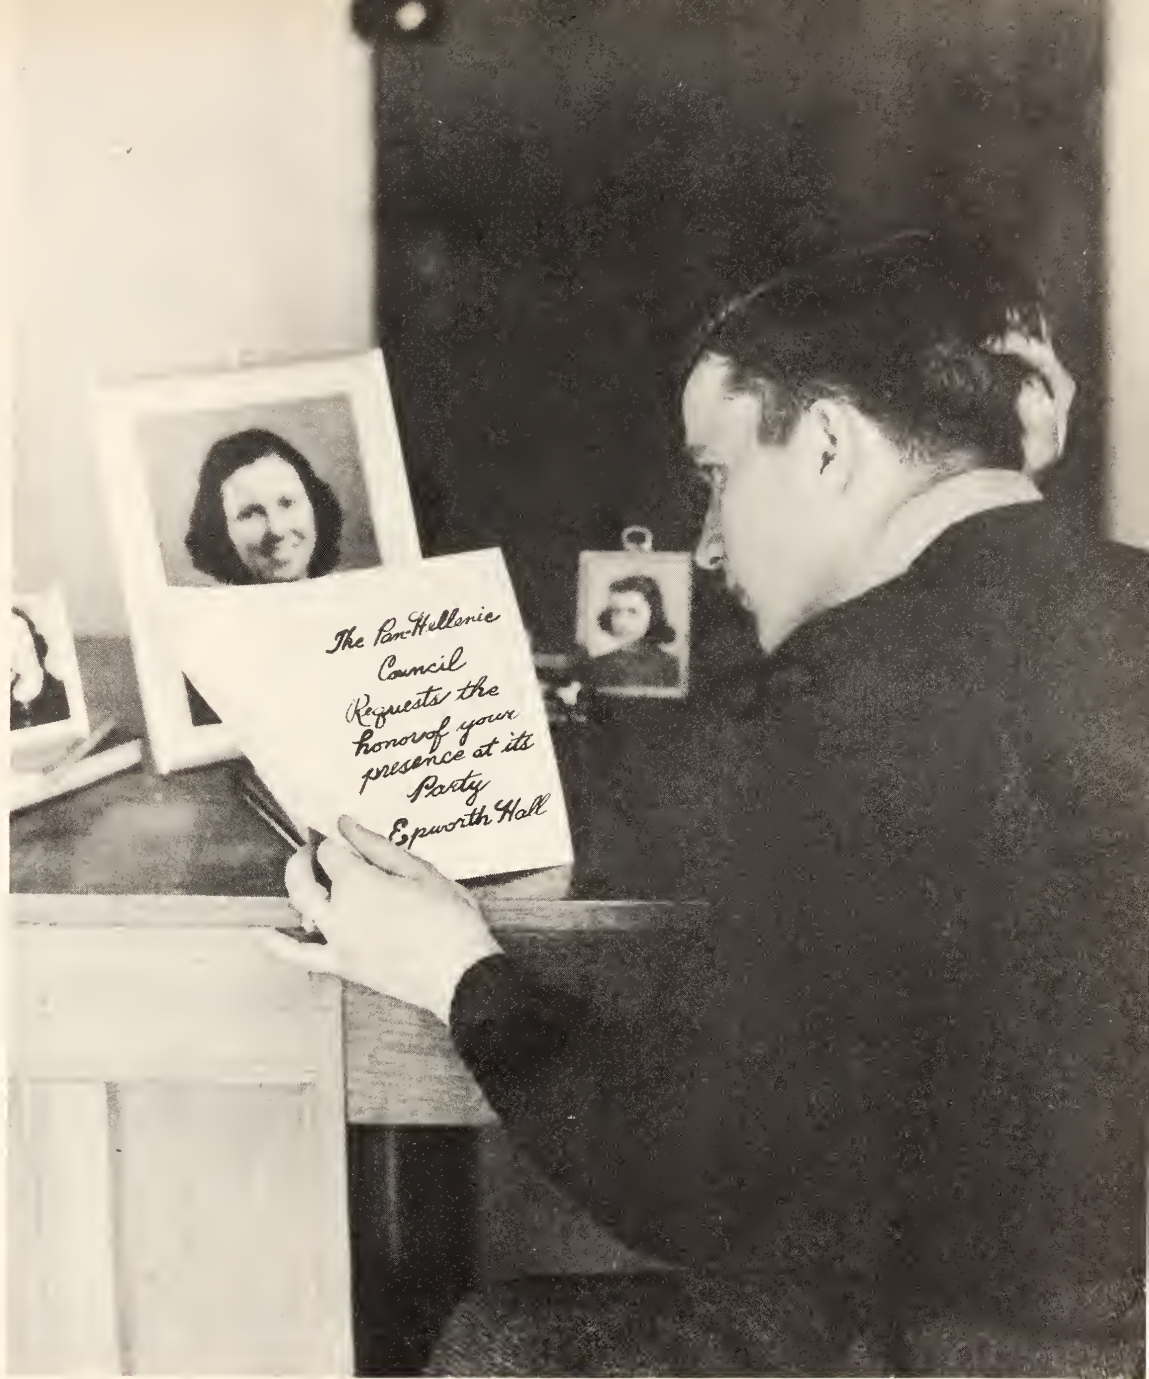 The Pan-Hellenic
Council
Requests the
honor of your
presence at its
Party
Epworth Hall